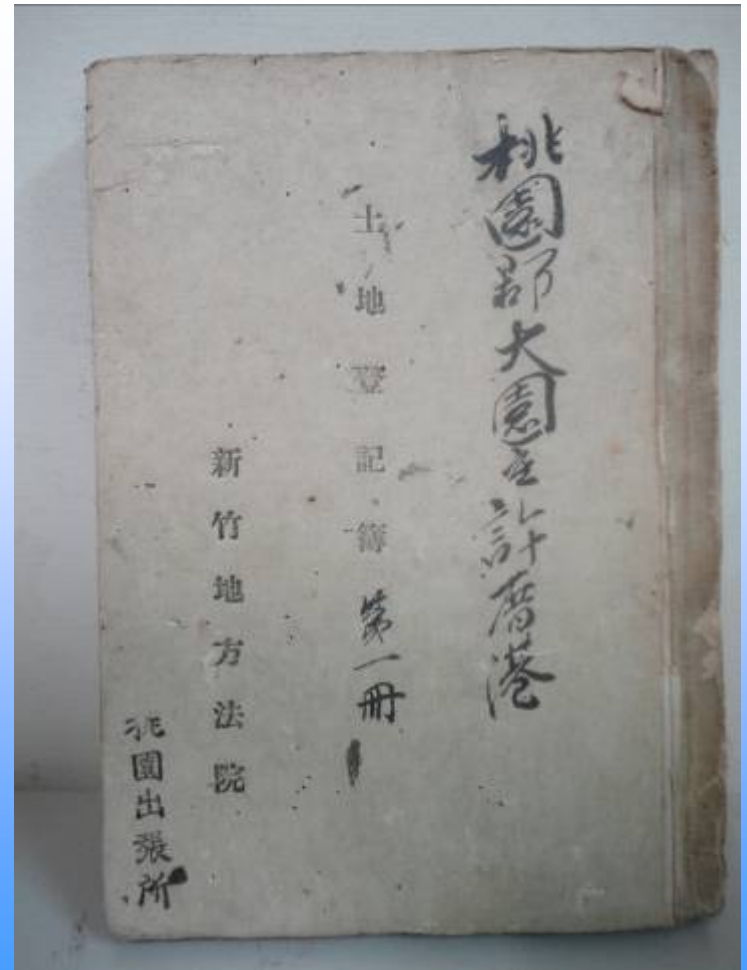 桃園郡大園庄許厝港
土地登記簿第一冊
新竹地方法院
桃園出張所